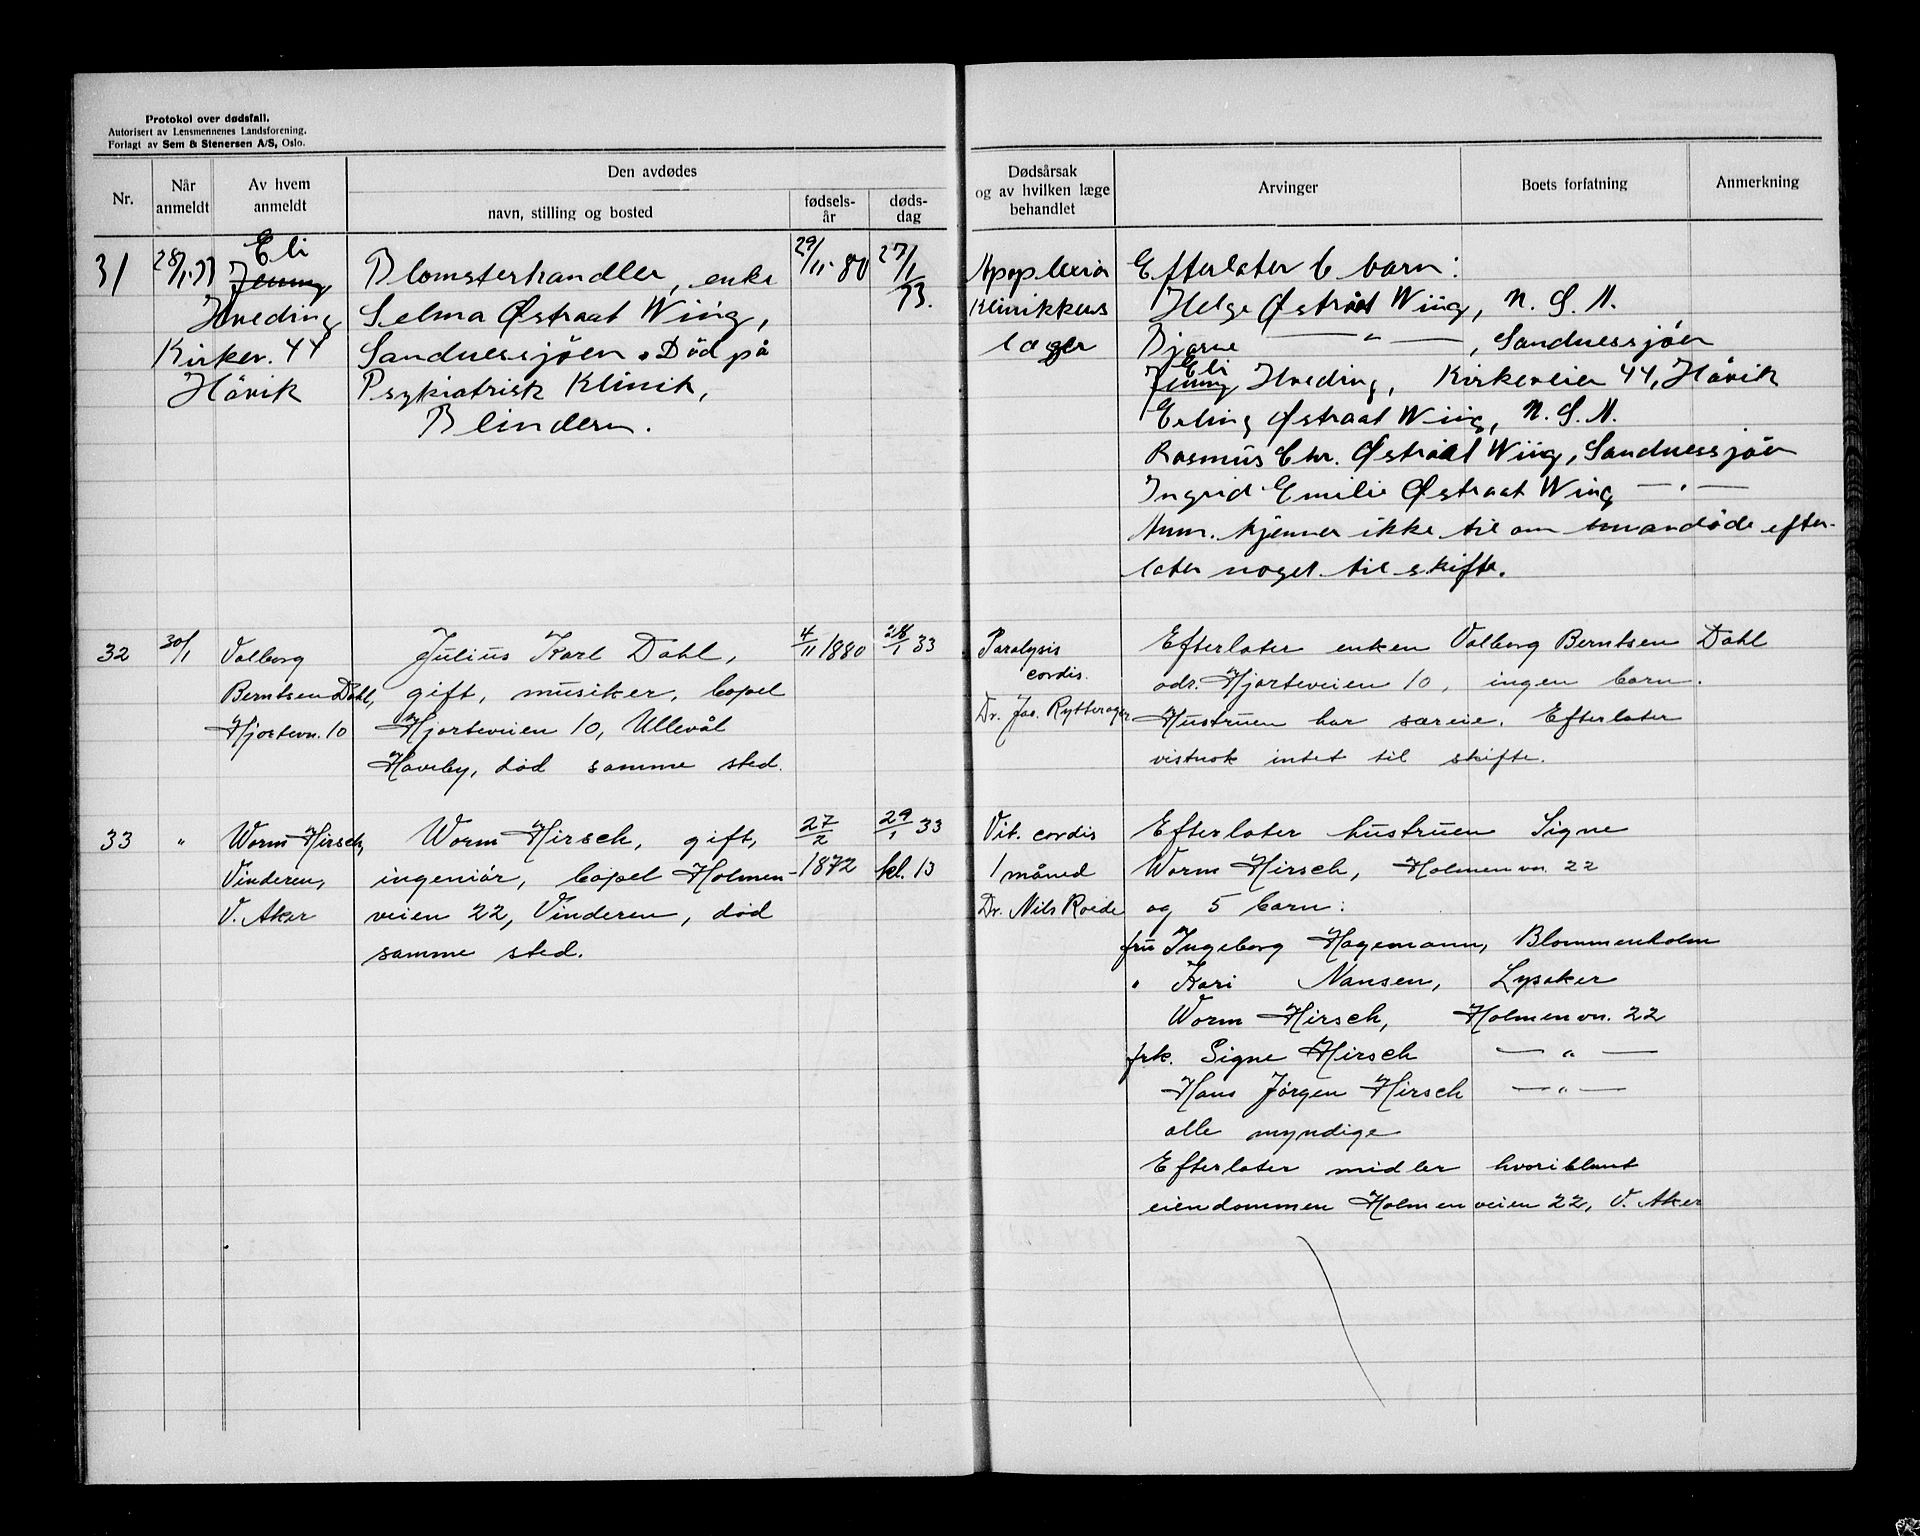 Protokol over dødsfall.
Autorisert av Lensmennenes Landsforening.
Forlagt av Sem & Stenersen A/S, Oslo.
Nr.
Når anmeldt
Av hvem anmeldt
Den avdødes
navn, stilling og bosted
fødsels-år
døds-dag
Dødsårsak og av hvilken læge behandlet
Arvinger
Boets forfatning
Anmerkning
31
28/1.33
Eli
Jenny
Hveding
Kirkev. 44
Hövik
Blomsterhandler, enke
Selma Østraat Wiig,
Sandnessjöen. Död på
Psykiatrisk Klinik,
Blindern.
29/11-80
27/1
33.
Apoplexia
Klinikkens
læger
Efterlater 6 barn:
Helge Østraat Wiig, N. S. A.
Bjarne — " —, Sandnessjöen
Eli
Jenny Hveding, Kirkeveien 44, Hövik
Erling Østraat Wiig, N. S. A.
Rasmus Chr. Østraat Wiig, Sandnessjöen
Ingrid Emilie Østraat Wiig — " —
Anm. kjenner ikke til om avdöde efter-
later noget til skifte.
32
30/1
Valborg
Berntsen Dahl,
Hjortevn. 10
Julius Karl Dahl,
gift, musiker, bopel
Hjorteveien 10, Ullevål
Haveby, död samme sted.
4/11 1880
28/1 33
Paralysis
cordis.
Dr. Jac. Rytterager
Efterlater enken Valborg Berntsen Dahl
adr. Hjorteveien 10, ingen barn.
Hustruen har særeie. Efterlater
vistnok intet til skifte.
33
"
Worm Hirsch,
Vinderen,
V. Aker
Worm Hirsch, gift,
ingeniör, bopel Holmen-
veien 22, Vinderen, död
samme sted.
27/2
1872
29/1 33
kl. 13
Vit. cordis
1 måned
Dr. Nils Roede
Efterlater hustruen Signe
Worm Hirsch, Holmenvn. 22
og 5 barn:
fru Ingeborg Hagemann, Blommenholm
" Kari Nansen, Lysaker
Worm Hirsch, Holmenvn. 22
frk. Signe Hirsch — " —
Hans Jörgen Hirsch — " —
alle myndige
Efterlater midler hvoriblant
eiendommen Holmenveien 22, V. Aker